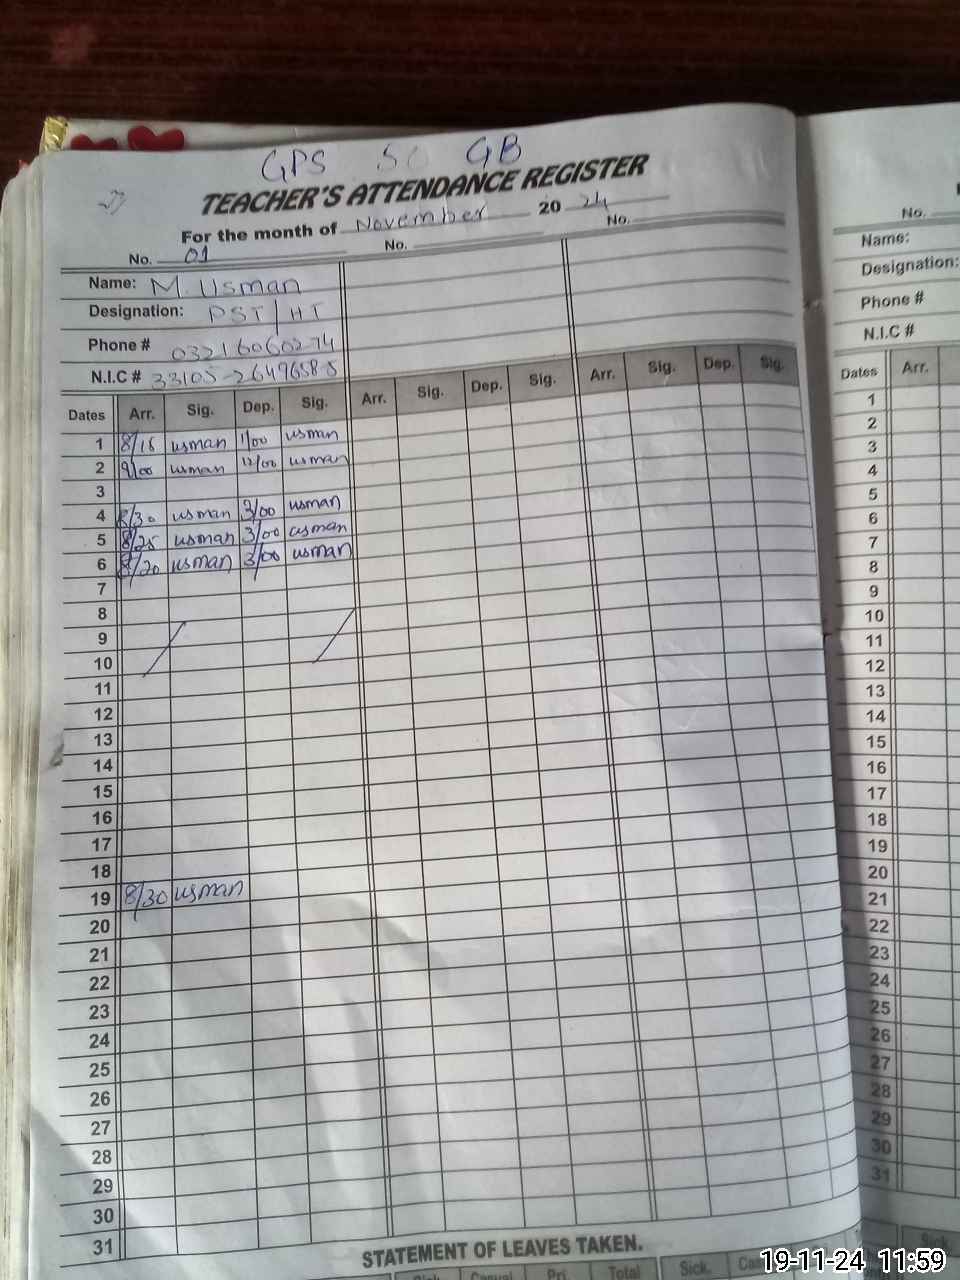 GPS 50 GB
TEACHER'S ATTENDANCE REGISTER
For the month of November 2024
No. 01 No. No.
Name: M. Usman
Designation: PST/HT
Phone # 03216060274
N.I.C # 33105-2649658-5
Dates Arr. Sig. Dep. Sig. Arr. Sig. Dep. Sig. Arr. Sig. Dep. Sig.
1 8/15 usman 1/00 usman
2 9/00 usman 12/00 usman
3
4 8/30 usman 3/00 usman
5 8/25 usman 3/00 usman
6 8/20 usman 3/00 usman
7
8
9
10
11
12
13
14
15
16
17
18
19 8/30 usman
20
21
22
23
24
25
26
27
28
29
30
31
STATEMENT OF LEAVES TAKEN.
Sick Casual Pri. Total Sick.
No.
Name:
Designation:
Phone #
N.I.C #
Dates Arr.
1
2
3
4
5
6
7
8
9
10
11
12
13
14
15
16
17
18
19
20
21
22
23
24
25
26
27
28
29
30
31
Sick
19-11-24 11:59